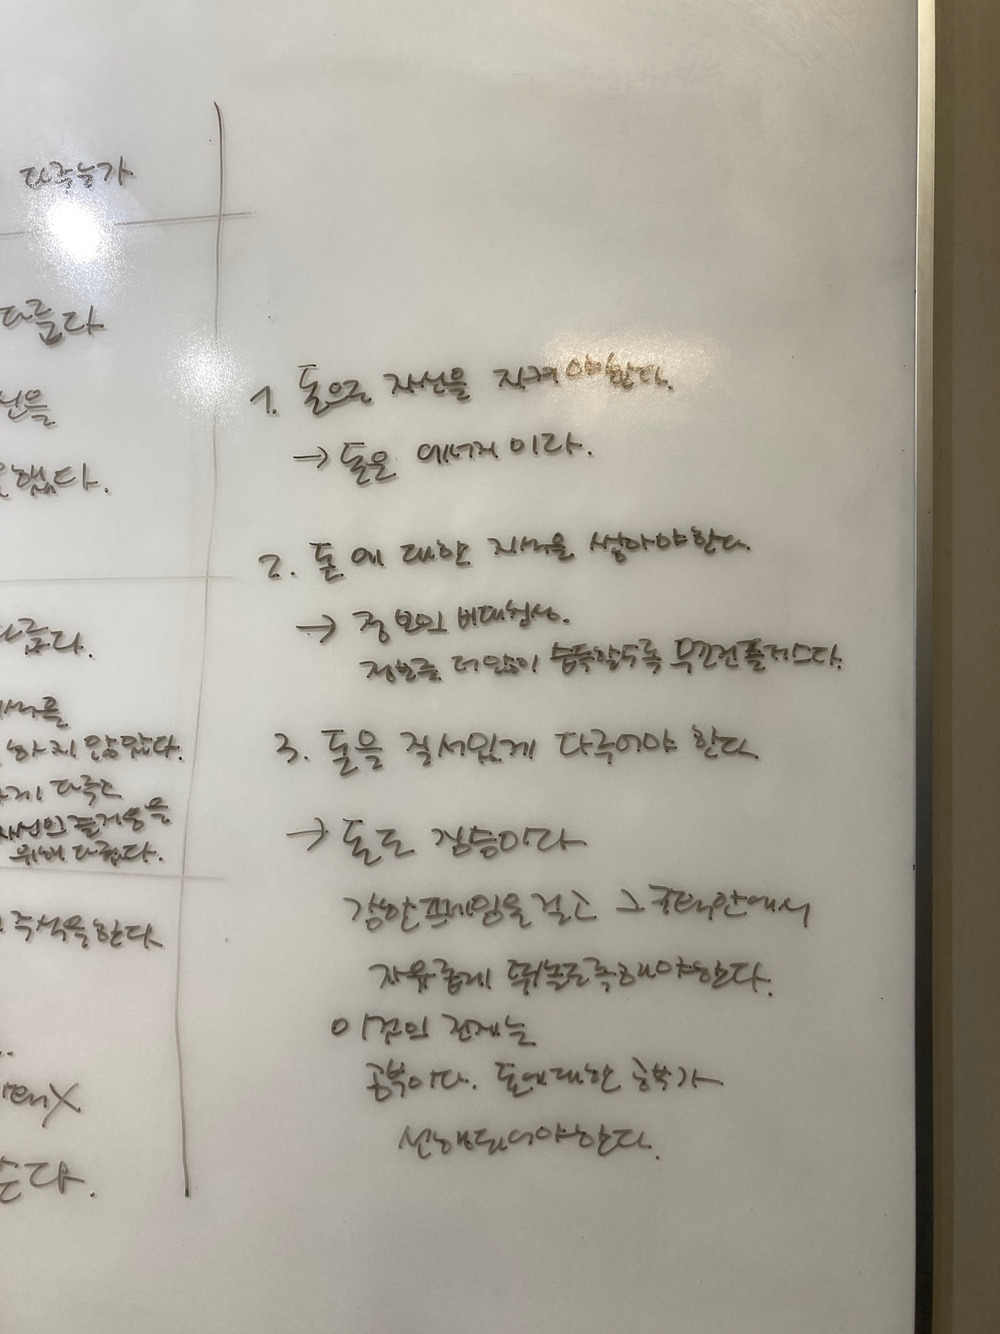 다루는가
다룹다
했다.
하지 않았다.
위해 다뤘다.
주석을한다
1. 돈으로 자신을 지켜야한다.
→ 돈은 에너지이다.
2. 돈에 대한 지식을 쌓아야한다.
→ 정보의 비대칭성.
정보를 더많이 습득할수록 무조건 플러스다.
3. 돈을 질서있게 다루어야 한다.
→ 돈도 짐승이다
강한프레임을걸고 그 안에서
자유롭게 뛰놀도록해야한다.
이것의 전제는
공부이다. 돈에대한 공부가
선행되어야한다.